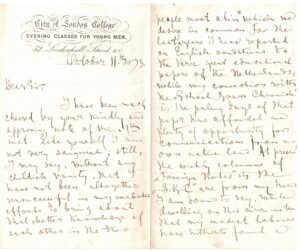 City of London College
EVENING CLASSES FOR YOUNG MEN,
52, Leadenhall Street E.C.
October 11th 1873.
Dear Sir,
I have been much
cheered by your kindly and
approving note of the
inst. Like yourself I am
not very sanguine, still,
I may say, without any
childish vanity, that I
have not been altogether
unsuccessful in my
efforts to bring about
that better knowledge of
each other in the two
people most akin which we
desire in common. For the
last years I have reported
on English matters to
the three great educational
papers of the Netherlands,
while my connection with
the School Board Chronicle
in the palmy days of that
paper has afforded me
plenty of opportunity for
communication from
own native land. At present
the weekly columns of
"Foreign Notes" in the
S.B.C. are from my pen
I am bound to say, whilst
dwelling on this
that my modest labours
may without found a